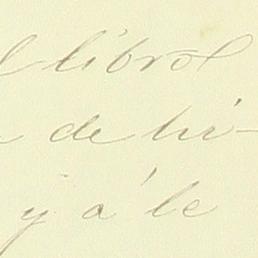 libro
de hi-
y a le